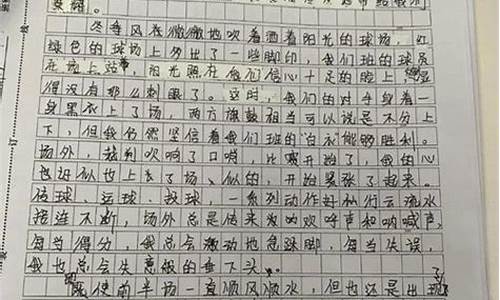 冬季风在微微地吹着洒着阳光的球场，红
绿色的球场上多出了一些脚印，我们班的球员
在场上站，阳光照在他们信心十足的脸上
得没有那么刺眼了。这时，我们的对手身着一
身黑衣上了场，两方旗鼓相当可以说是不分上
下，但我仍然坚信着我们班的"白衣能够胜利。
场外，裁判吹响了口哨，比赛开始了，我的心
也近似也上了场、似的，开始紧张了起来。
传球、运球、投球，一系列动作行云流水
接连不断，场外总是传来为的欢呼声和呐喊声，
每当得分，我总会激动地急跺脚，每当失误，
我也总会失意般的垂下头。
既使前半场一直顺风顺水，但也还是出现